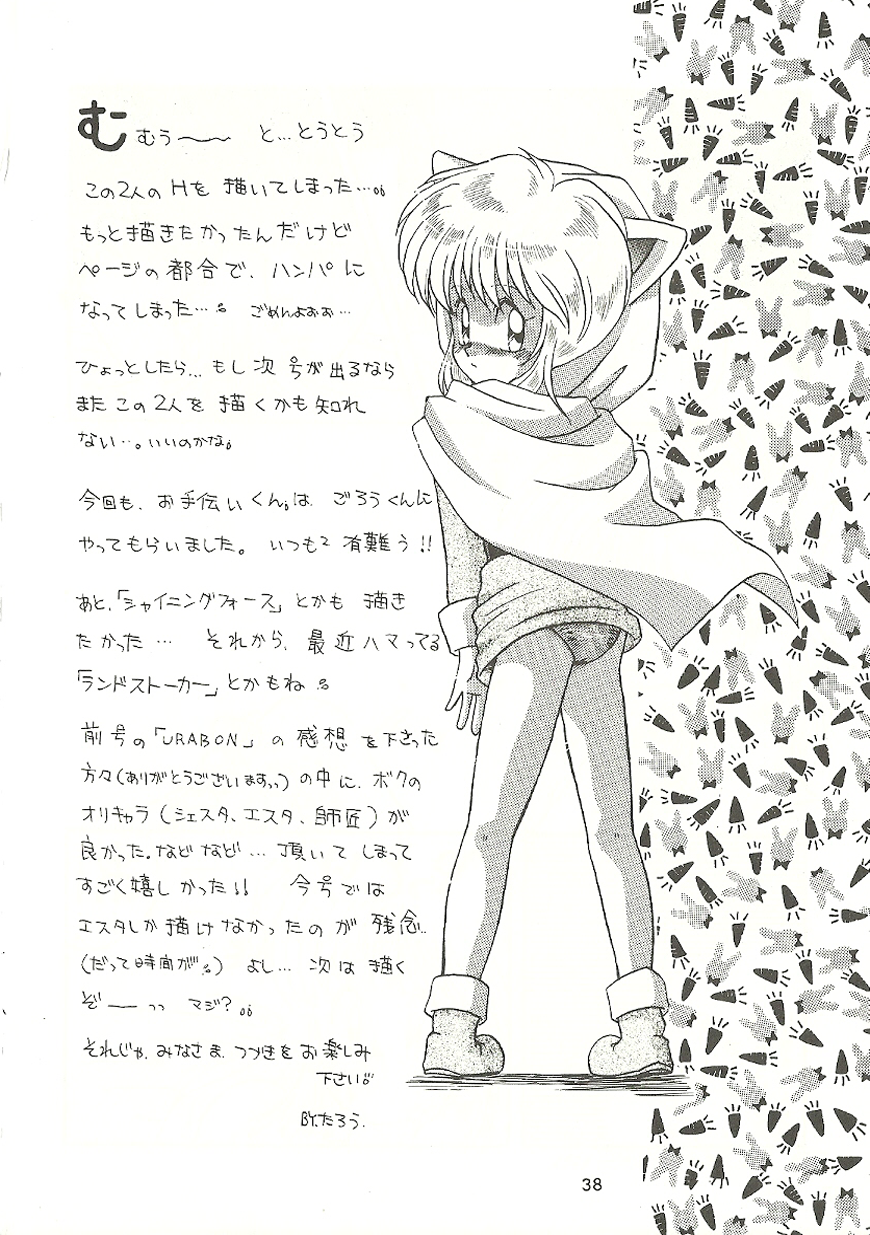 む むぅ〜〜 と…とうとう
この2人のHを描いてしまった…。
もっと描きたかったんだけど
ページの都合で、ハンパに
なってしまった…。ごめんよおぉ…
ひょっとしたら…もし次号が出るなら
またこの2人を描くかも知れ
ない…。いいのかな。
今回も、お手伝いくんは、ごろうくんに
やってもらいました。いつも2有難う!!
あと、「シャイニングフォース」とかも描き
たかった… それから、最近ハマってる
「ランドストーカー」とかもね。
前号の「URABON」の感想を下さった
方々(ありがとうございますっっ)の中に、ボクの
オリキャラ(シェスタ、エスタ、師匠)が
良かった。などなど…頂いてしまって
すごく嬉しかった!! 今号では
エスタしか描けなかったのが残念…
(だって時間が。) よし…次は描く
ぞ――っっ マジ?
それじゃ、みなさま、つづきをお楽しみ
下さい。
BY.たろう.
38